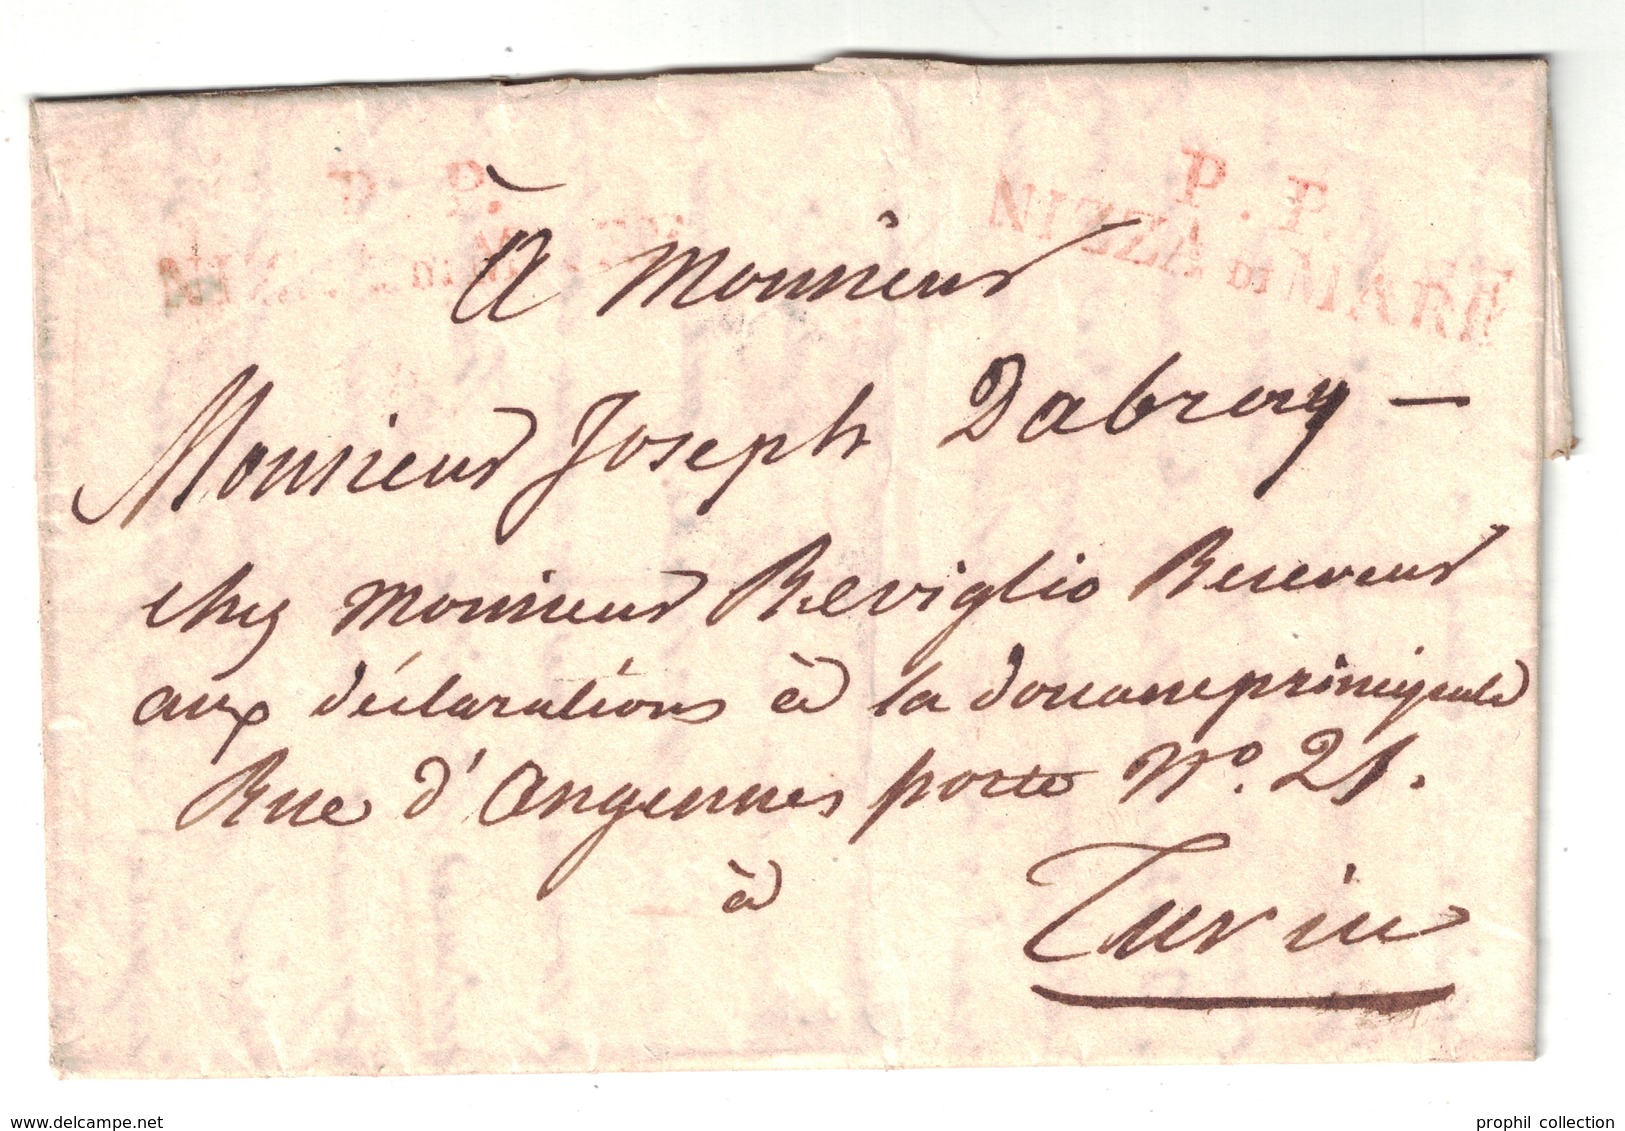 P. P.
P. P.
NIZZA DI MARE
à Monsieur
Monsieur Joseph Dabray —
chez Monsieur Reviglio Receveur
aux déclarations à la douane principale
Rue d'Angennes porte No. 21.
à
Turin
delcampe.net
prophil collection